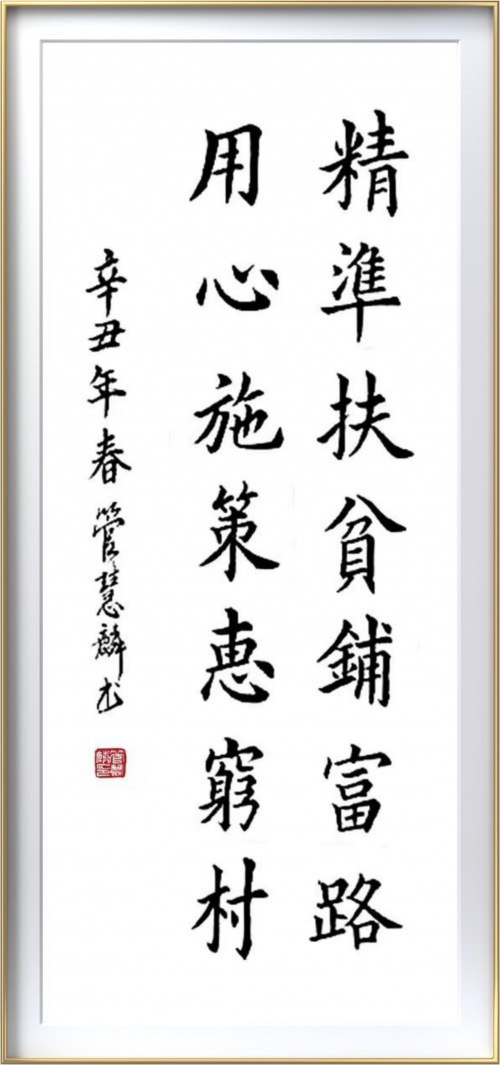 精準扶貧鋪富路
用心施策惠窮村
辛丑年春管慧麟书